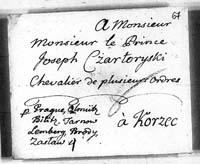 64
A Monsieur
Monsieur le Prince
Joseph Czartoryski
Chevalier de plusieurs Ordres
p Prague, Olmütz
Bilitz Tarnow
Lemberg, Brody,
Zaslaw
à Korzec